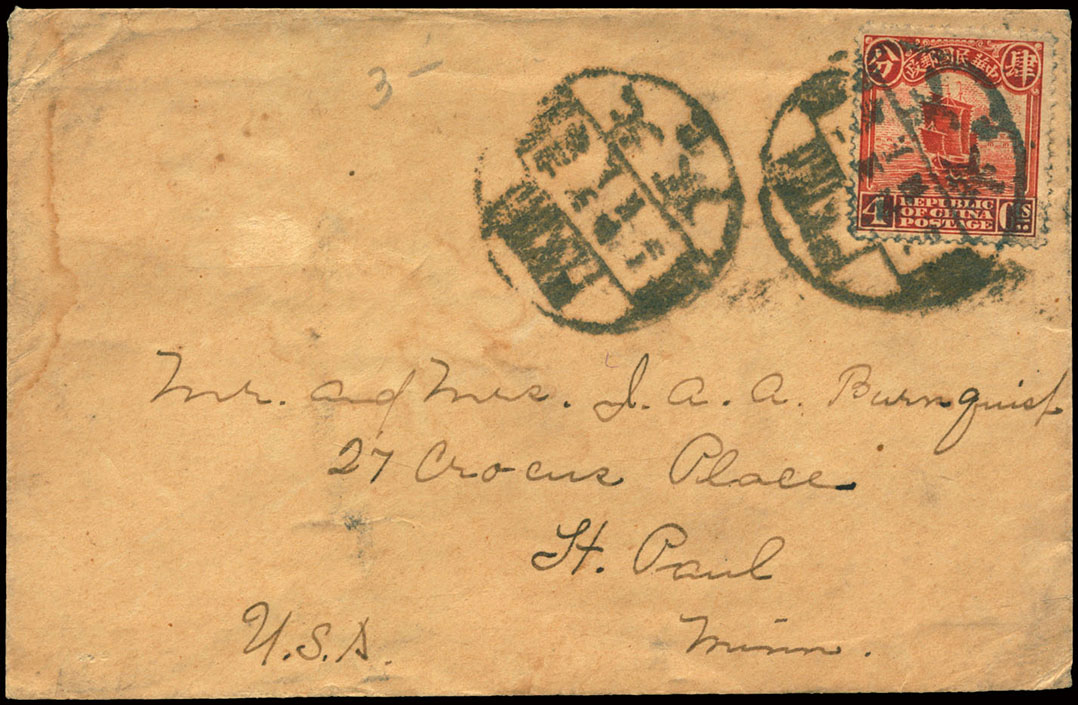 3 –
中華民國郵政
分 肆
REPUBLIC
OF CHINA
POSTAGE
4 CTS
Mr. and Mrs. J. A. A. Burnquist
27 Crocus Place
St. Paul
Minn.
U.S.A.